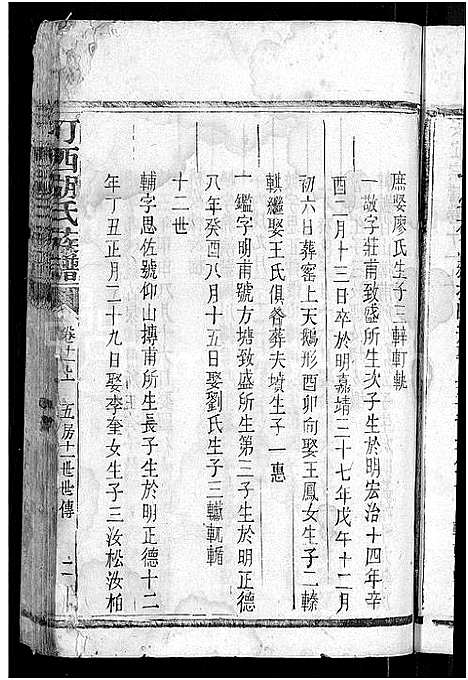 庶娶廖氏生子三軒軏
一敬字莊甫致盛所生次子生於明宏治十四年辛
酉二月十三日卒於明嘉靖三十七年戊午十二月
初六日葬窑上天鵝形酉卯向娶王鳳女生子二
繼娶王氏俱脊葬夫墳生子一惠
一鑑字明甫號方塘致盛所生第三子生於明正德
八年癸酉八月十五日娶劉氏生子三
十二世
輔字思佐號仰山摶甫所生長子生於明正德十二
年丁丑正月二十九日娶李奎女生子三汝松汝柏
西胡氏族譜
卷十上 五房十一世世傳 二